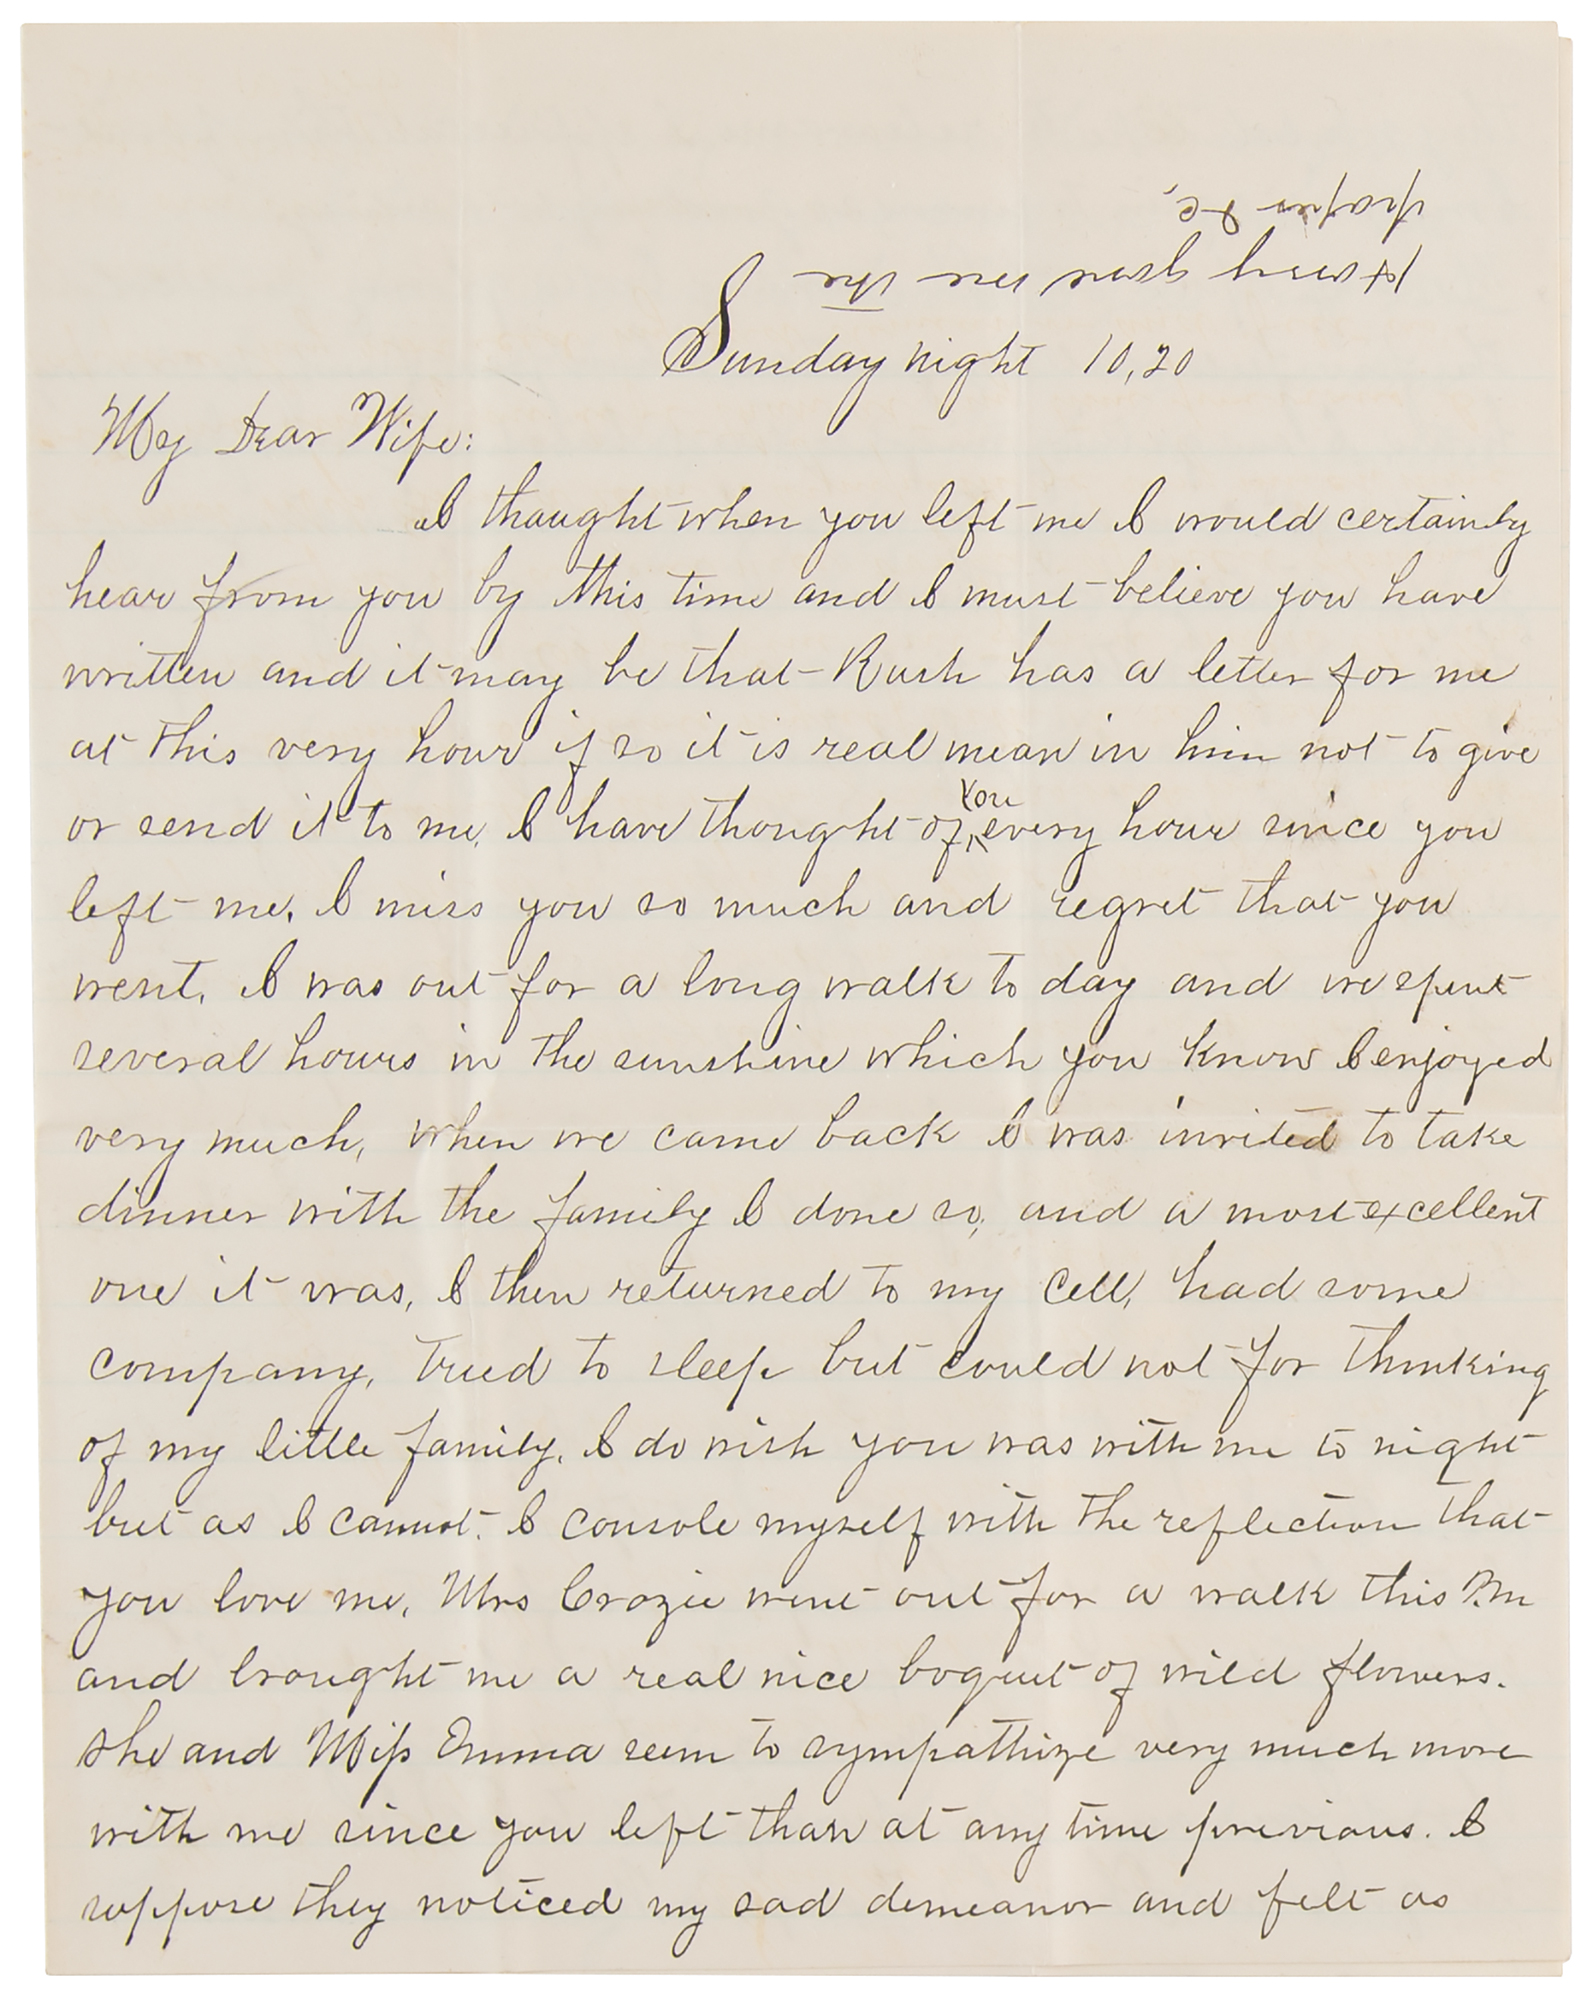 Harry gave me the
paper &c,
Sunday night 10,20
My Dear Wife:
I thought when you left me I would certainly
hear from you by this time and I must believe you have
written and it may be that Rush has a letter for me
at this very hour if so it is real mean in him not to give
or send it to me. I have thought of you every hour since you
left me. I miss you so much and regret that you
went. I was out for a long walk to day and we spent
several hours in the sunshine which you know I enjoyed
very much, when we came back I was invited to take
dinner with the family I done so, and a most excellent
one it was, I then returned to my cell, had some
company, tried to sleep but could not for thinking
of my little family. I do wish you was with me to night
but as I cannot. I console myself with the reflection that
you love me, Mrs Crozie went out for a walk this P.m
and brought me a real nice boquet of wild flowers.
She and Miss Emma seem to sympathize very much more
with me since you left than at any time previous. I
suppose they noticed my sad demeanor and felt as